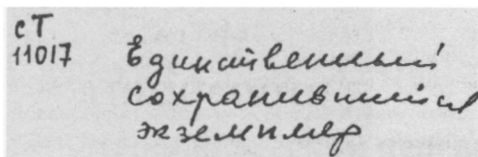 ст
11017
Единственный
сохранившийся
экземпляр